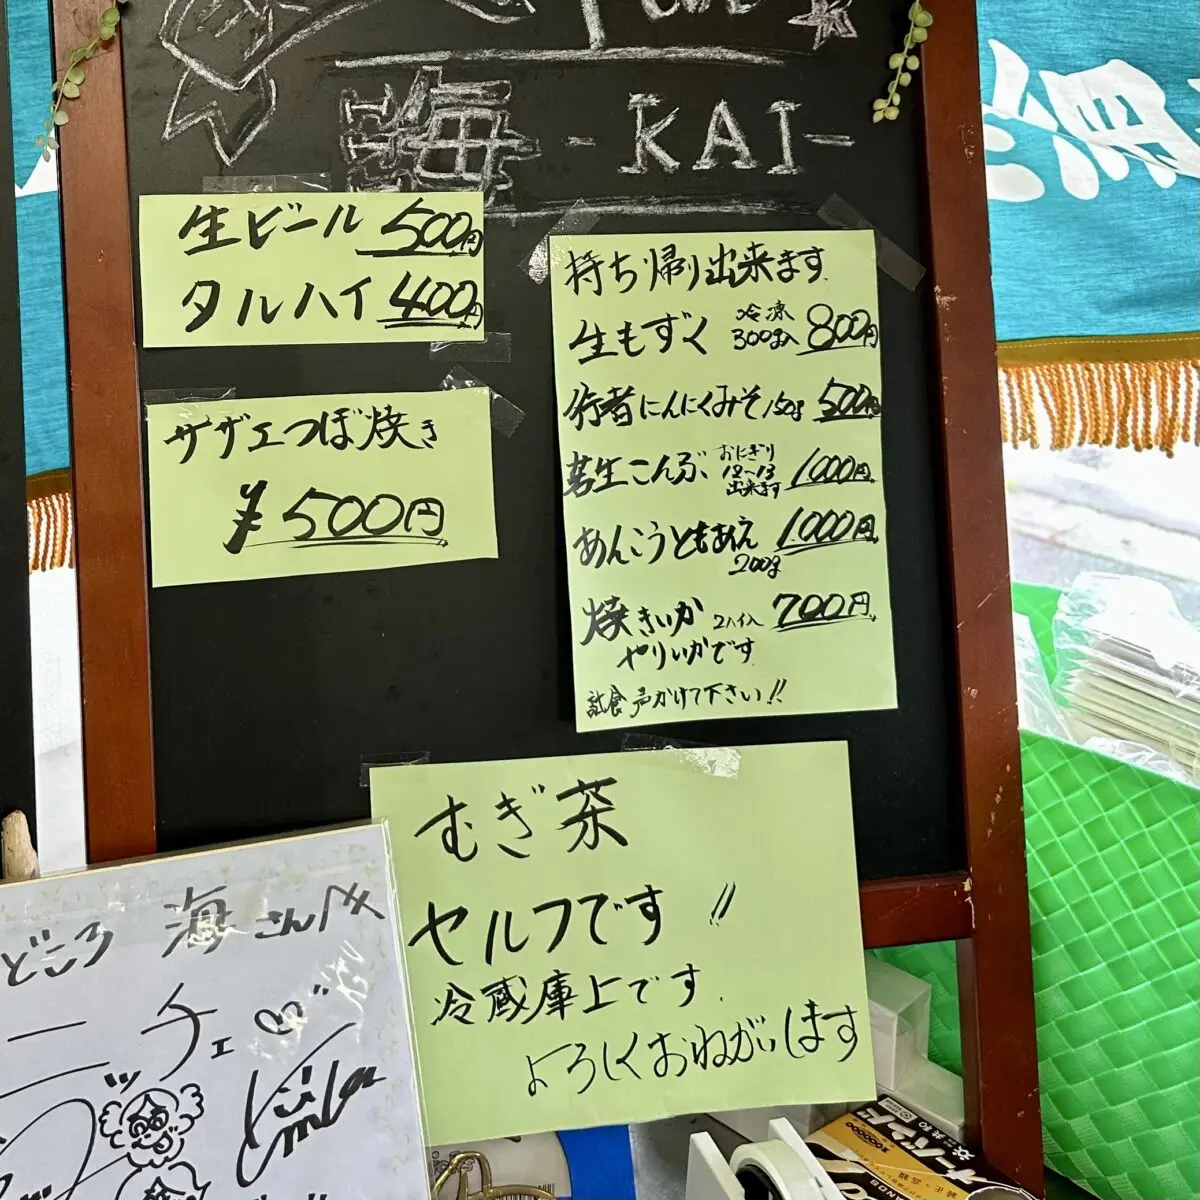 海 - KAI -
生ビール 500円
タルハイ 400円
サザエつぼ焼き
¥500円
持ち帰り出来ます
生もずく 冷凍 300g入 800円
行者にんにくみそ150g 500円
若生こんぶ おにぎり 12〜13 出来ます 1,000円
あんこうともあえ 200g 1,000円
焼きいか 2ハイ入 700円
やりいかです
試食声かけて下さい!!
むぎ茶
セルフです!!
冷蔵庫上です.
よろしくおねがいします
どころ 海さん江
ニチェ